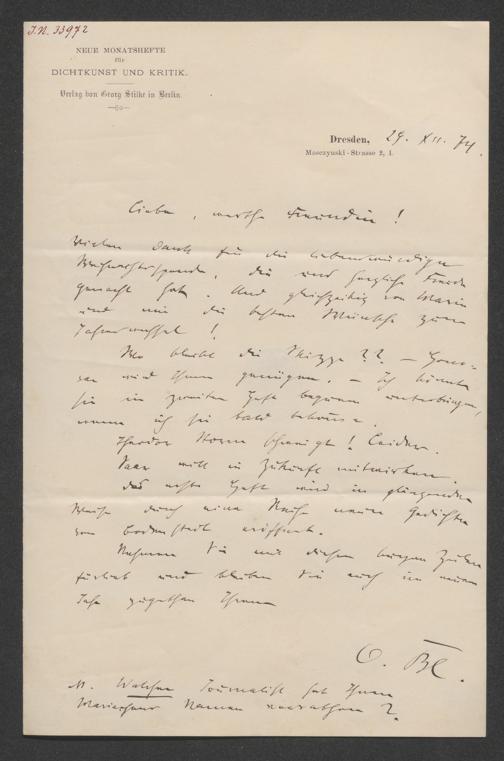 J.N. 33972
NEUE MONATSHEFTE
für
DICHTKUNST UND KRITIK.
Verlag von Georg Stilke in Berlin.
Dresden, 29. XII. 74.
Mosczynski-Strasse 2, I.
Liebe, werthe Freundin!
Vielen Dank für die liebenswürdige
Weihnachtsspende, die uns herzliche Freude
gemacht hat. Und gleichzeitig von Marie
und mir die besten Wünsche zum
Jahreswechsel!
Wo bleibt die Skizze?? – Hono-
rar wird Ihnen genügen. – Ich könnte
sie im zweiten Heft bequem unterbringen,
wenn ich sie bald bekomme.
Theodor Storm schweigt! Leider.
Saar will in Zukunft mitwirken.
Das erste Heft wird in glänzender
Weise durch eine Reihe neuer Gedichte
von Bodenstedt eröffnet.
Nehmen Sie mit diesen kurzen Zeilen
fürlieb und bleiben Sie auch im neuen
Jahr zugethan Ihrem
O. Bl.
Welcher Journalist hat Ihnen
Namen verrathen?